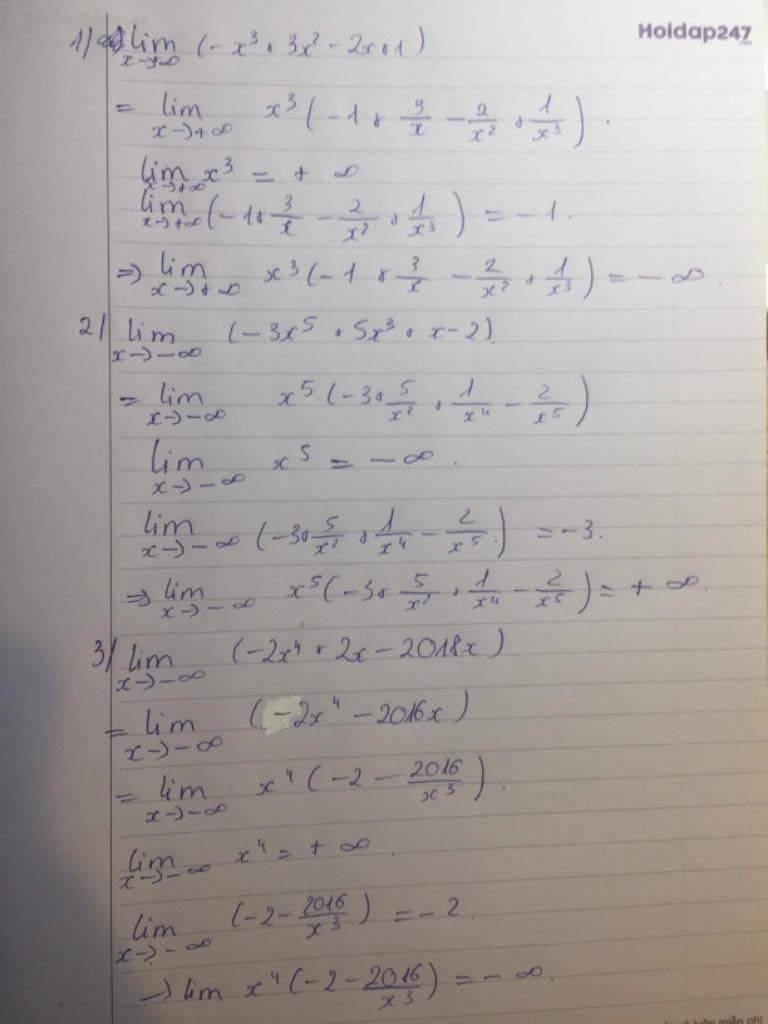 Hoidap247
1) lim x→+∞ (-x³ + 3x² - 2x + 1)
= lim x→+∞ x³(-1 + 3/x - 2/x² + 1/x³).
lim x→+∞ x³ = +∞
lim x→+∞ (-1 + 3/x - 2/x² + 1/x³) = -1.
=> lim x→+∞ x³(-1 + 3/x - 2/x² + 1/x³) = -∞.
2) lim x→-∞ (-3x⁵ + 5x³ + x - 2)
= lim x→-∞ x⁵(-3 + 5/x² + 1/x⁴ - 2/x⁵)
lim x→-∞ x⁵ = -∞.
lim x→-∞ (-3 + 5/x² + 1/x⁴ - 2/x⁵) = -3.
=> lim x→-∞ x⁵(-3 + 5/x² + 1/x⁴ - 2/x⁵) = +∞.
3) lim x→-∞ (-2x⁴ + 2x - 2018x)
= lim x→-∞ (-2x⁴ - 2016x)
= lim x→-∞ x⁴(-2 - 2016/x³).
lim x→-∞ x⁴ = +∞.
lim x→-∞ (-2 - 2016/x³) = -2
→ lim x⁴(-2 - 2016/x³) = -∞.